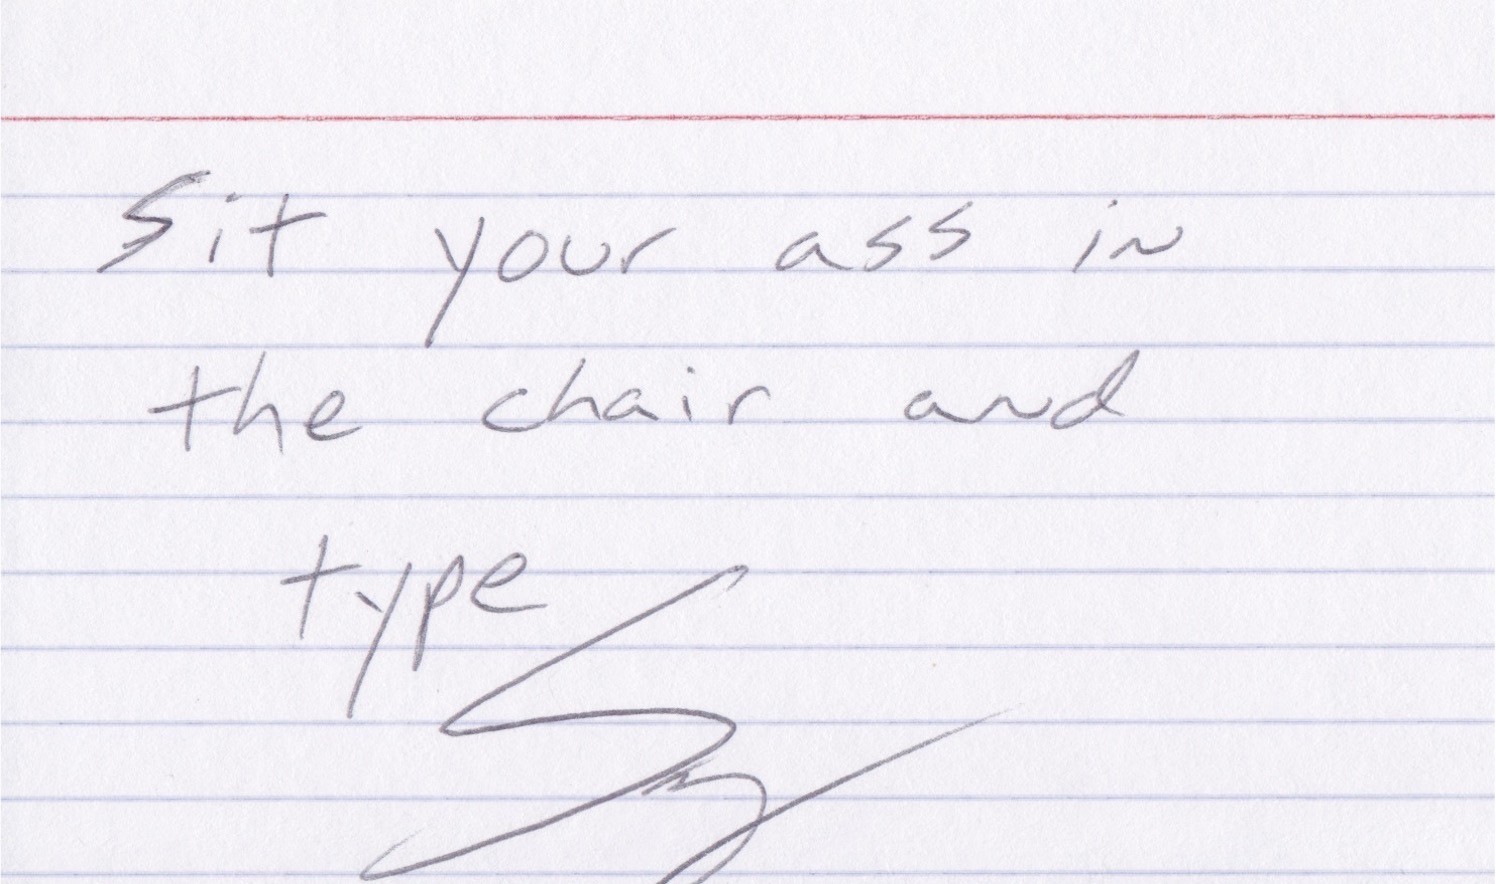 Sit your ass in
the chair and
type